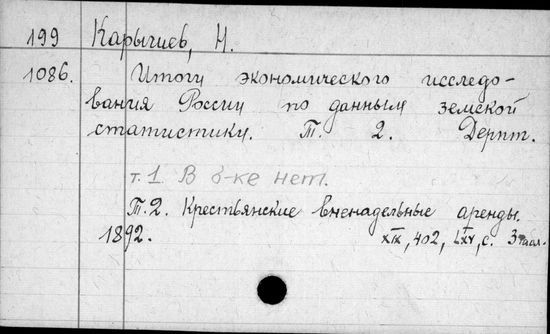 199 Карышев, Н.
1086. Итоги экономического исследо-
вания России по данным земской
статистики. Т. 2. Дерпт.
т. 1 В б-ке нет.
Т. 2. Крестьянские вненадельные аренды.
1892. XIX, 402, LXV, с. 3 табл.